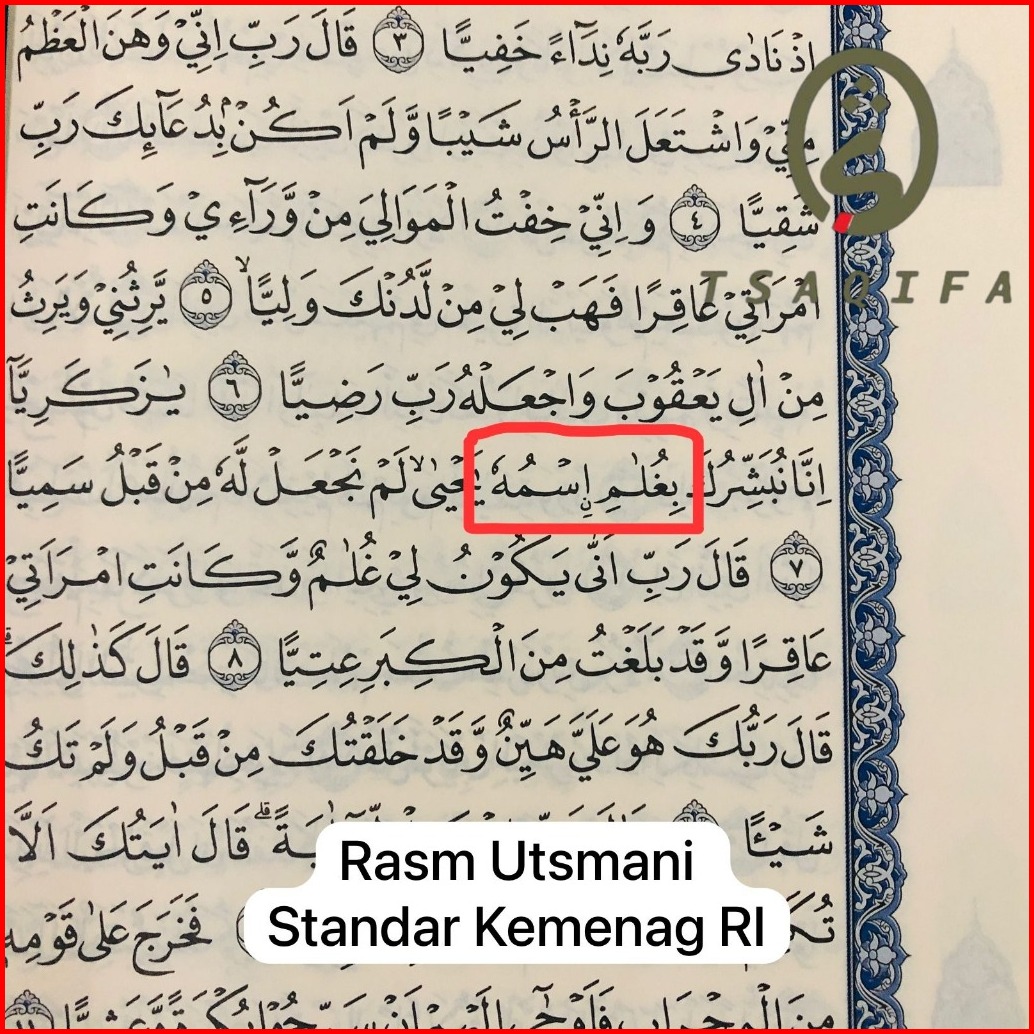 اِذْ نَادٰى رَبَّهٗ نِدَاۤءً خَفِيًّا ٣ قَالَ رَبِّ اِنِّيْ وَهَنَ الْعَظْمُ
مِنِّيْ وَاشْتَعَلَ الرَّأْسُ شَيْبًا وَّلَمْ اَكُنْۢ بِدُعَاۤىِٕكَ رَبِّ
شَقِيًّا ٤ وَاِنِّيْ خِفْتُ الْمَوَالِيَ مِنْ وَّرَاۤءِيْ وَكَانَتِ
امْرَاَتِيْ عَاقِرًا فَهَبْ لِيْ مِنْ لَّدُنْكَ وَلِيًّاۙ ٥ يَّرِثُنِيْ وَيَرِثُ
TSAQIFA
مِنْ اٰلِ يَعْقُوْبَ وَاجْعَلْهُ رَبِّ رَضِيًّا ٦ يٰزَكَرِيَّآ
اِنَّا نُبَشِّرُكَ بِغُلٰمِ ِۨاسْمُهٗ يَحْيٰىۙ لَمْ نَجْعَلْ لَّهٗ مِنْ قَبْلُ سَمِيًّا
٧ قَالَ رَبِّ اَنّٰى يَكُوْنُ لِيْ غُلٰمٌ وَّكَانَتِ امْرَاَتِيْ
عَاقِرًا وَّقَدْ بَلَغْتُ مِنَ الْكِبَرِ عِتِيًّا ٨ قَالَ كَذٰلِكَۗ
قَالَ رَبُّكَ هُوَ عَلَيَّ هَيِّنٌ وَّقَدْ خَلَقْتُكَ مِنْ قَبْلُ وَلَمْ تَكُ
شَيْـًٔا قَالَ اٰيَتُكَ اَلَّا
Rasm Utsmani
Standar Kemenag RI
فَخَرَجَ عَلٰى قَوْمِهٖ